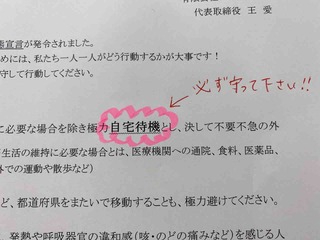 代表取締役 王 愛
態宣言が発令されました。
めには、私たち一人一人がどう行動するかが大事です！
守して行動してください。
必ず守って下さい!!
に必要な場合を除き極力自宅待機とし、決して不要不急の外
生活の維持に必要な場合とは、医療機関への通院、食料、医薬品、
外での運動や散歩など）
ど、都道府県をまたいで移動することも、極力避けてください。
発熱や呼吸器の違和感（咳・のどの痛みなど）を感じる人